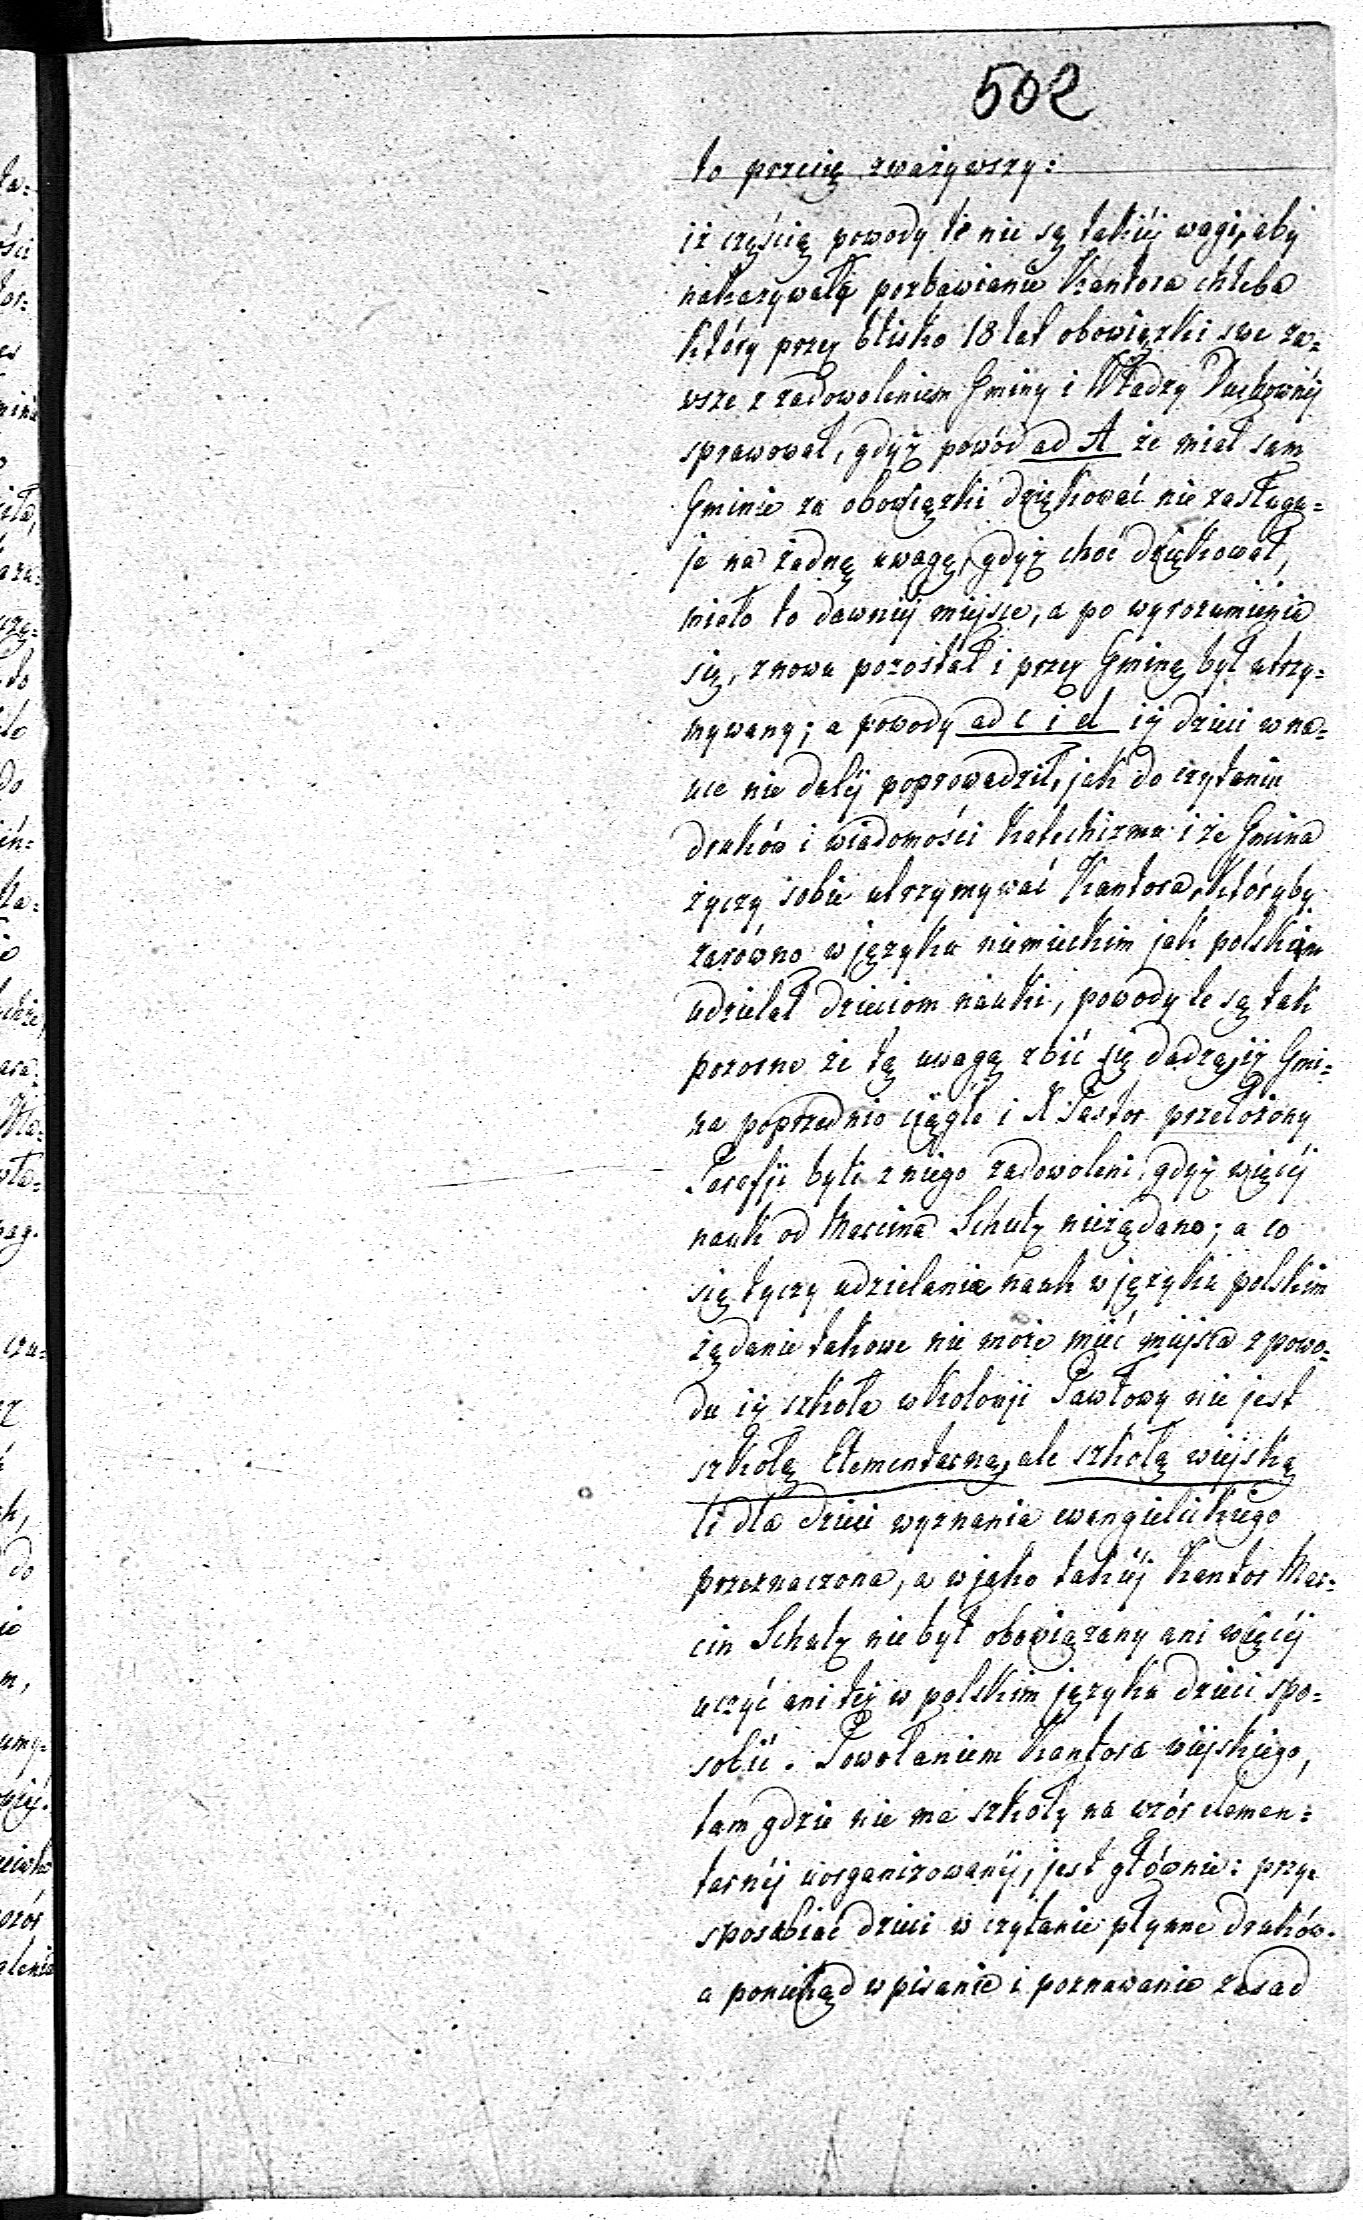 502
to przecię zważywszy:
iż częścią powody te nie są takiéj wagi, aby
nakazywały pozbawianie Kantora chleba
który przez blisko 18 lat obowiązki swe za=
wsze z zadowoleniem Gminy i Władzy Duchownéj
sprawował, gdyż powód ad A że miał sam
Gminie za obowiązki dziękować nie zasługu=
je na żadną uwagę, gdyż choć dziękował,
miało to dawniéj miejsce, a po wyrozumieniu
się, znowu pozostał i przez Gminę był utrzy=
mywany; a powody ad c i d iż dzieci w na=
uce nie daléj poprowadził, jak do czytania
druków i wiadomości Katechizmu i że Gmina
życzy sobie utrzymywać Kantora, któryby
zarówno w języku niemieckim jak polskim
udzielał dzieciom nauki, powody te są tak
pozorne że tą uwagą zbić się dadzą, iż Gmi=
na poprzednio ciągle i X Pastor przełożony
Parafji byli z niego zadowoleni, gdyż więcéj
nauk od Marcina Schulz nieżądano; a co
się tyczy udzielania nauk w języku polskim
żądanie takowe nie może mieć miejsca z powo=
du iż szkoła w Kolonji Pawłowy nie jest
szkołą Elementarną, ale szkołą wiejską
li dla dzieci wyznania ewangielickiego
przeznaczona, a w jako takiéj Kantor Mar=
cin Schulz nie był obowiązany ani więcéj
uczyć ani też w polskim języku dzieci spo=
sobić. Powołaniem Kantora wiejskiego,
tam gdzie nie ma szkoły na wzór elemen=
tarnéj uorganizowanéj, jest głównie: przy=
sposabiać dzieci w czytanie płynne druków.
a poniekąd w pisanie i poznawanie zasad